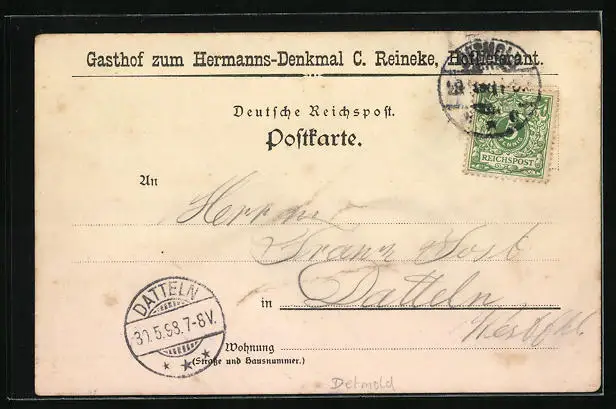 Gasthof zum Hermanns-Denkmal C. Reineke, Hoflieferant.
DETMOLD
Deutsche Reichspost.
Postkarte.
5
PFENNIG
REICHSPOST
An
Herrn
Franz Jost
in Datteln
Westfl.
DATTELN
30.5.98.7-8V.
Wohnung
(Straße und Hausnummer.)
Detmold